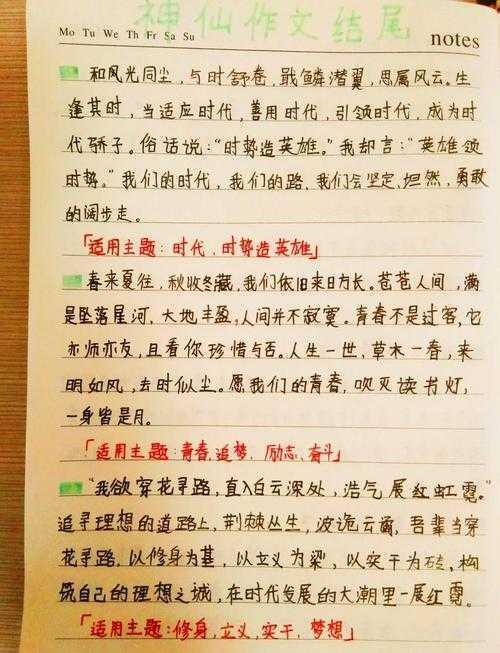 神仙作文结尾
Mo Tu We Th Fr Sa Su
notes
和风光同尘,与时舒卷,戢鳞潜翼,思属风云。生
逢其时,当适应时代,善用时代,引领时代,成为时
代骄子。俗话说:“时势造英雄。”我却言:“英雄领
时势。”我们的时代,我们的路,我们会坚定,坦然,勇敢
的阔步走。
「适用主题:时代,时势造英雄」
春来夏往,秋收冬藏,我们依旧来日方长。苍苍人间,满
是坠落星河,大地丰盈,人间并不寂寞。青春不是过客,它
亦师亦友,且看你珍惜与否。人生一世,草木一春,来
明如风,去时似尘。愿我们的青春,吹灭读书灯,
一身皆是月。
「适用主题:青春,追梦,励志,奋斗」
“我欲穿花寻路,直入白云深处,浩气展红虹霓。”
追寻理想的道路上,荆棘丛生,波诡云谲,吾辈当穿
花寻路,以修身为基,以立义为梁,以实干为砖,构
筑自己的理想之城,在时代发展的大潮里一展红霓。
「适用主题:修身,立义,实干,梦想」